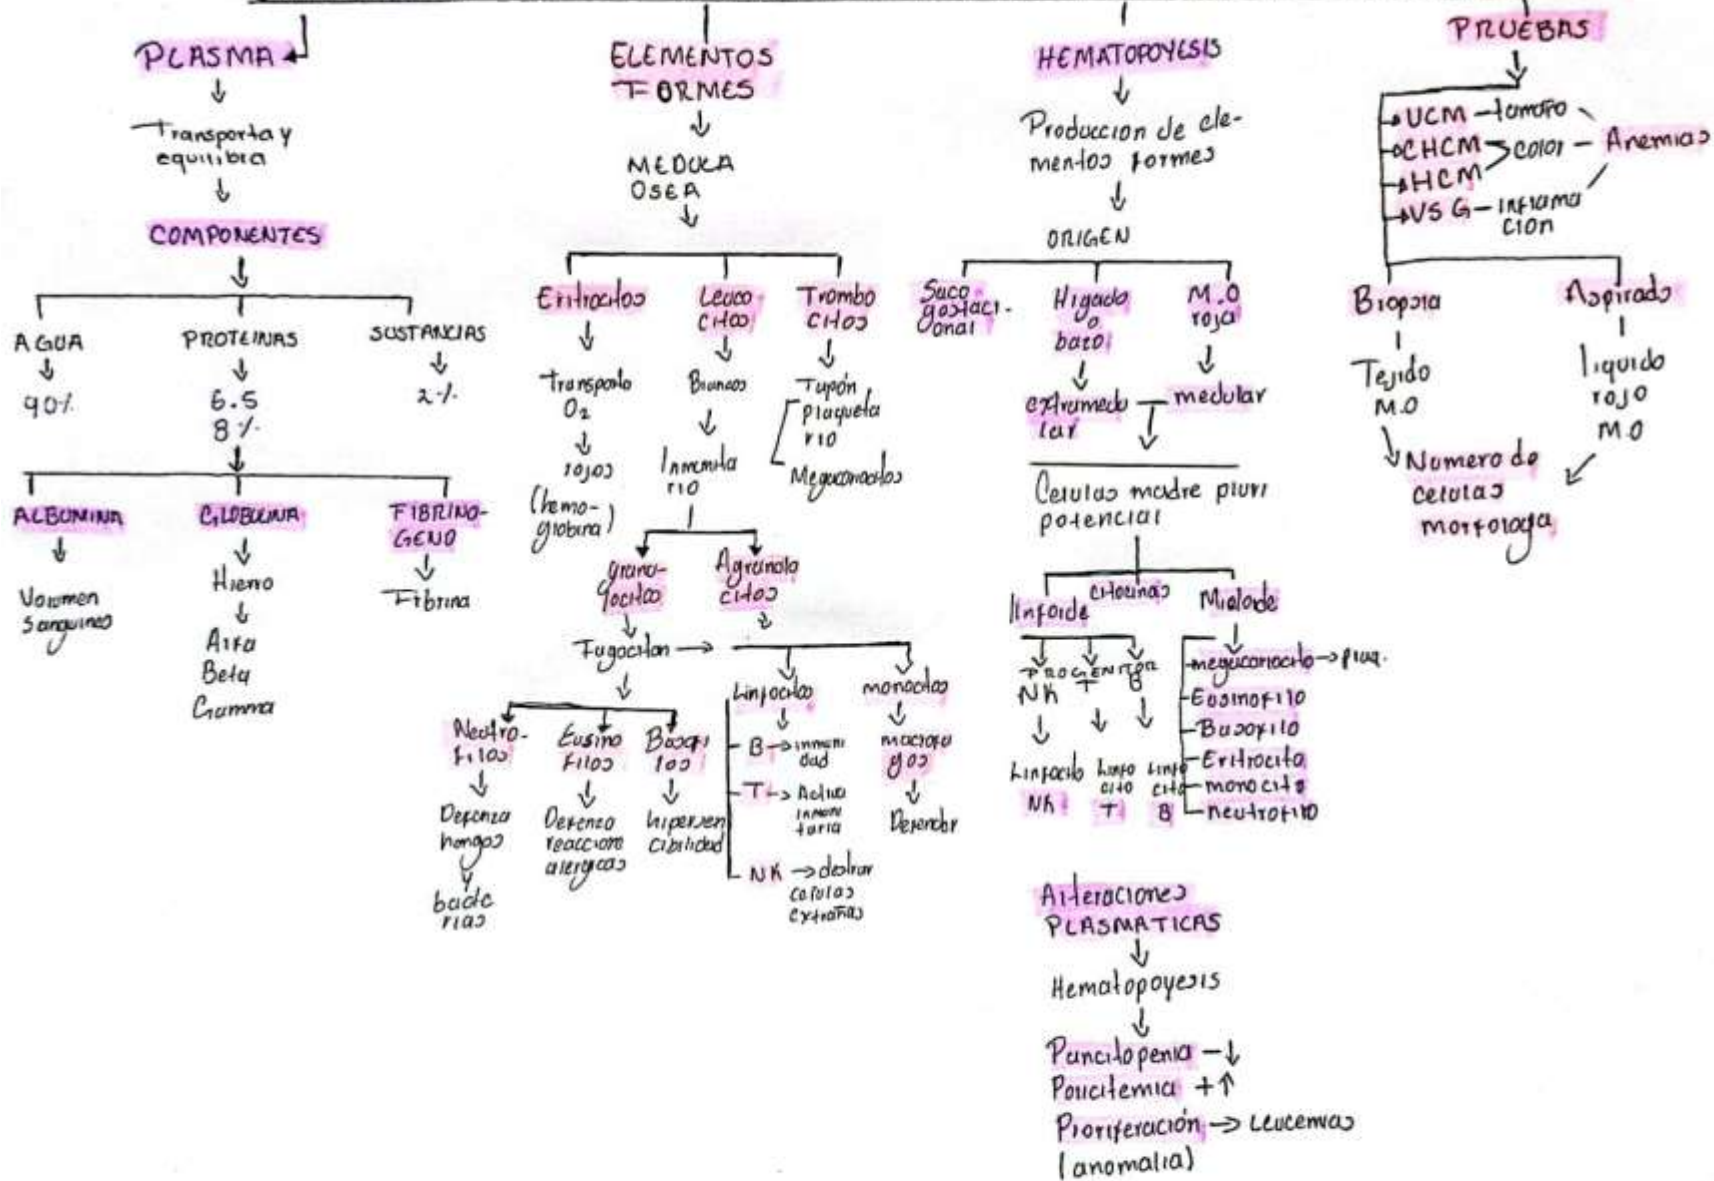 PLASMA
Transporta y
equilibra
COMPONENTES
AGUA
90%
PROTEINAS
6.5
8%
SUSTANCIAS
2%
ALBUMINA
Volumen
Sanguineo
GLOBULINA
Hierro
Alfa
Beta
Gamma
FIBRINO-
GENO
Fibrina
ELEMENTOS
FORMES
MEDULA
OSEA
Eritrocitos
Transporta
O2
rojos
(hemo-
globina)
Leuco-
citos
Blancos
Inmunita
rio
Trombo
citos
Tapón
plaqueta
rio
Megacariocitos
granu-
locitos
Agranulo
citos
Fagocitan
Neutro-
filos
Defenza
hongos
y
bacte
rias
Eusino
filos
Defenza
reaccions
alergicas
Basofi
los
hipersen
cibilidad
Linfocitos
B → inmuni
dad
T → Activa
inmuni
taria
NK → destruir
celulas
extrañas
monocitos
macrofa
gos
Defender
HEMATOPOYESIS
Produccion de ele-
mentos formes
ORIGEN
Saco
gestaci-
onal
Higado
o
bazo
extramedu
lar
M.O
roja
medular
Celulas madre pluri
potencial
linfoide
citocinas
Mieloide
PROGENITOR
NK T B
Linfocito
NK
Linfo
cito
T
Linfo
cito
B
megacariocito → plaq.
Eosinofilo
Basofilo
Eritrocito
monocito
neutrofilo
Alteraciones
PLASMATICAS
Hematopoyesis
Pancitopenia - ↓
Policitemia + ↑
Proliferación → Leucemias
(anomalia)
PRUEBAS
UCM - tamaño
CHCM
HCM
color - Anemias
VSG - inflama
cion
Biopsia
Tejido
M.O
Aspirado
liquido
rojo
M.O
Numero de
celulas
morfologa